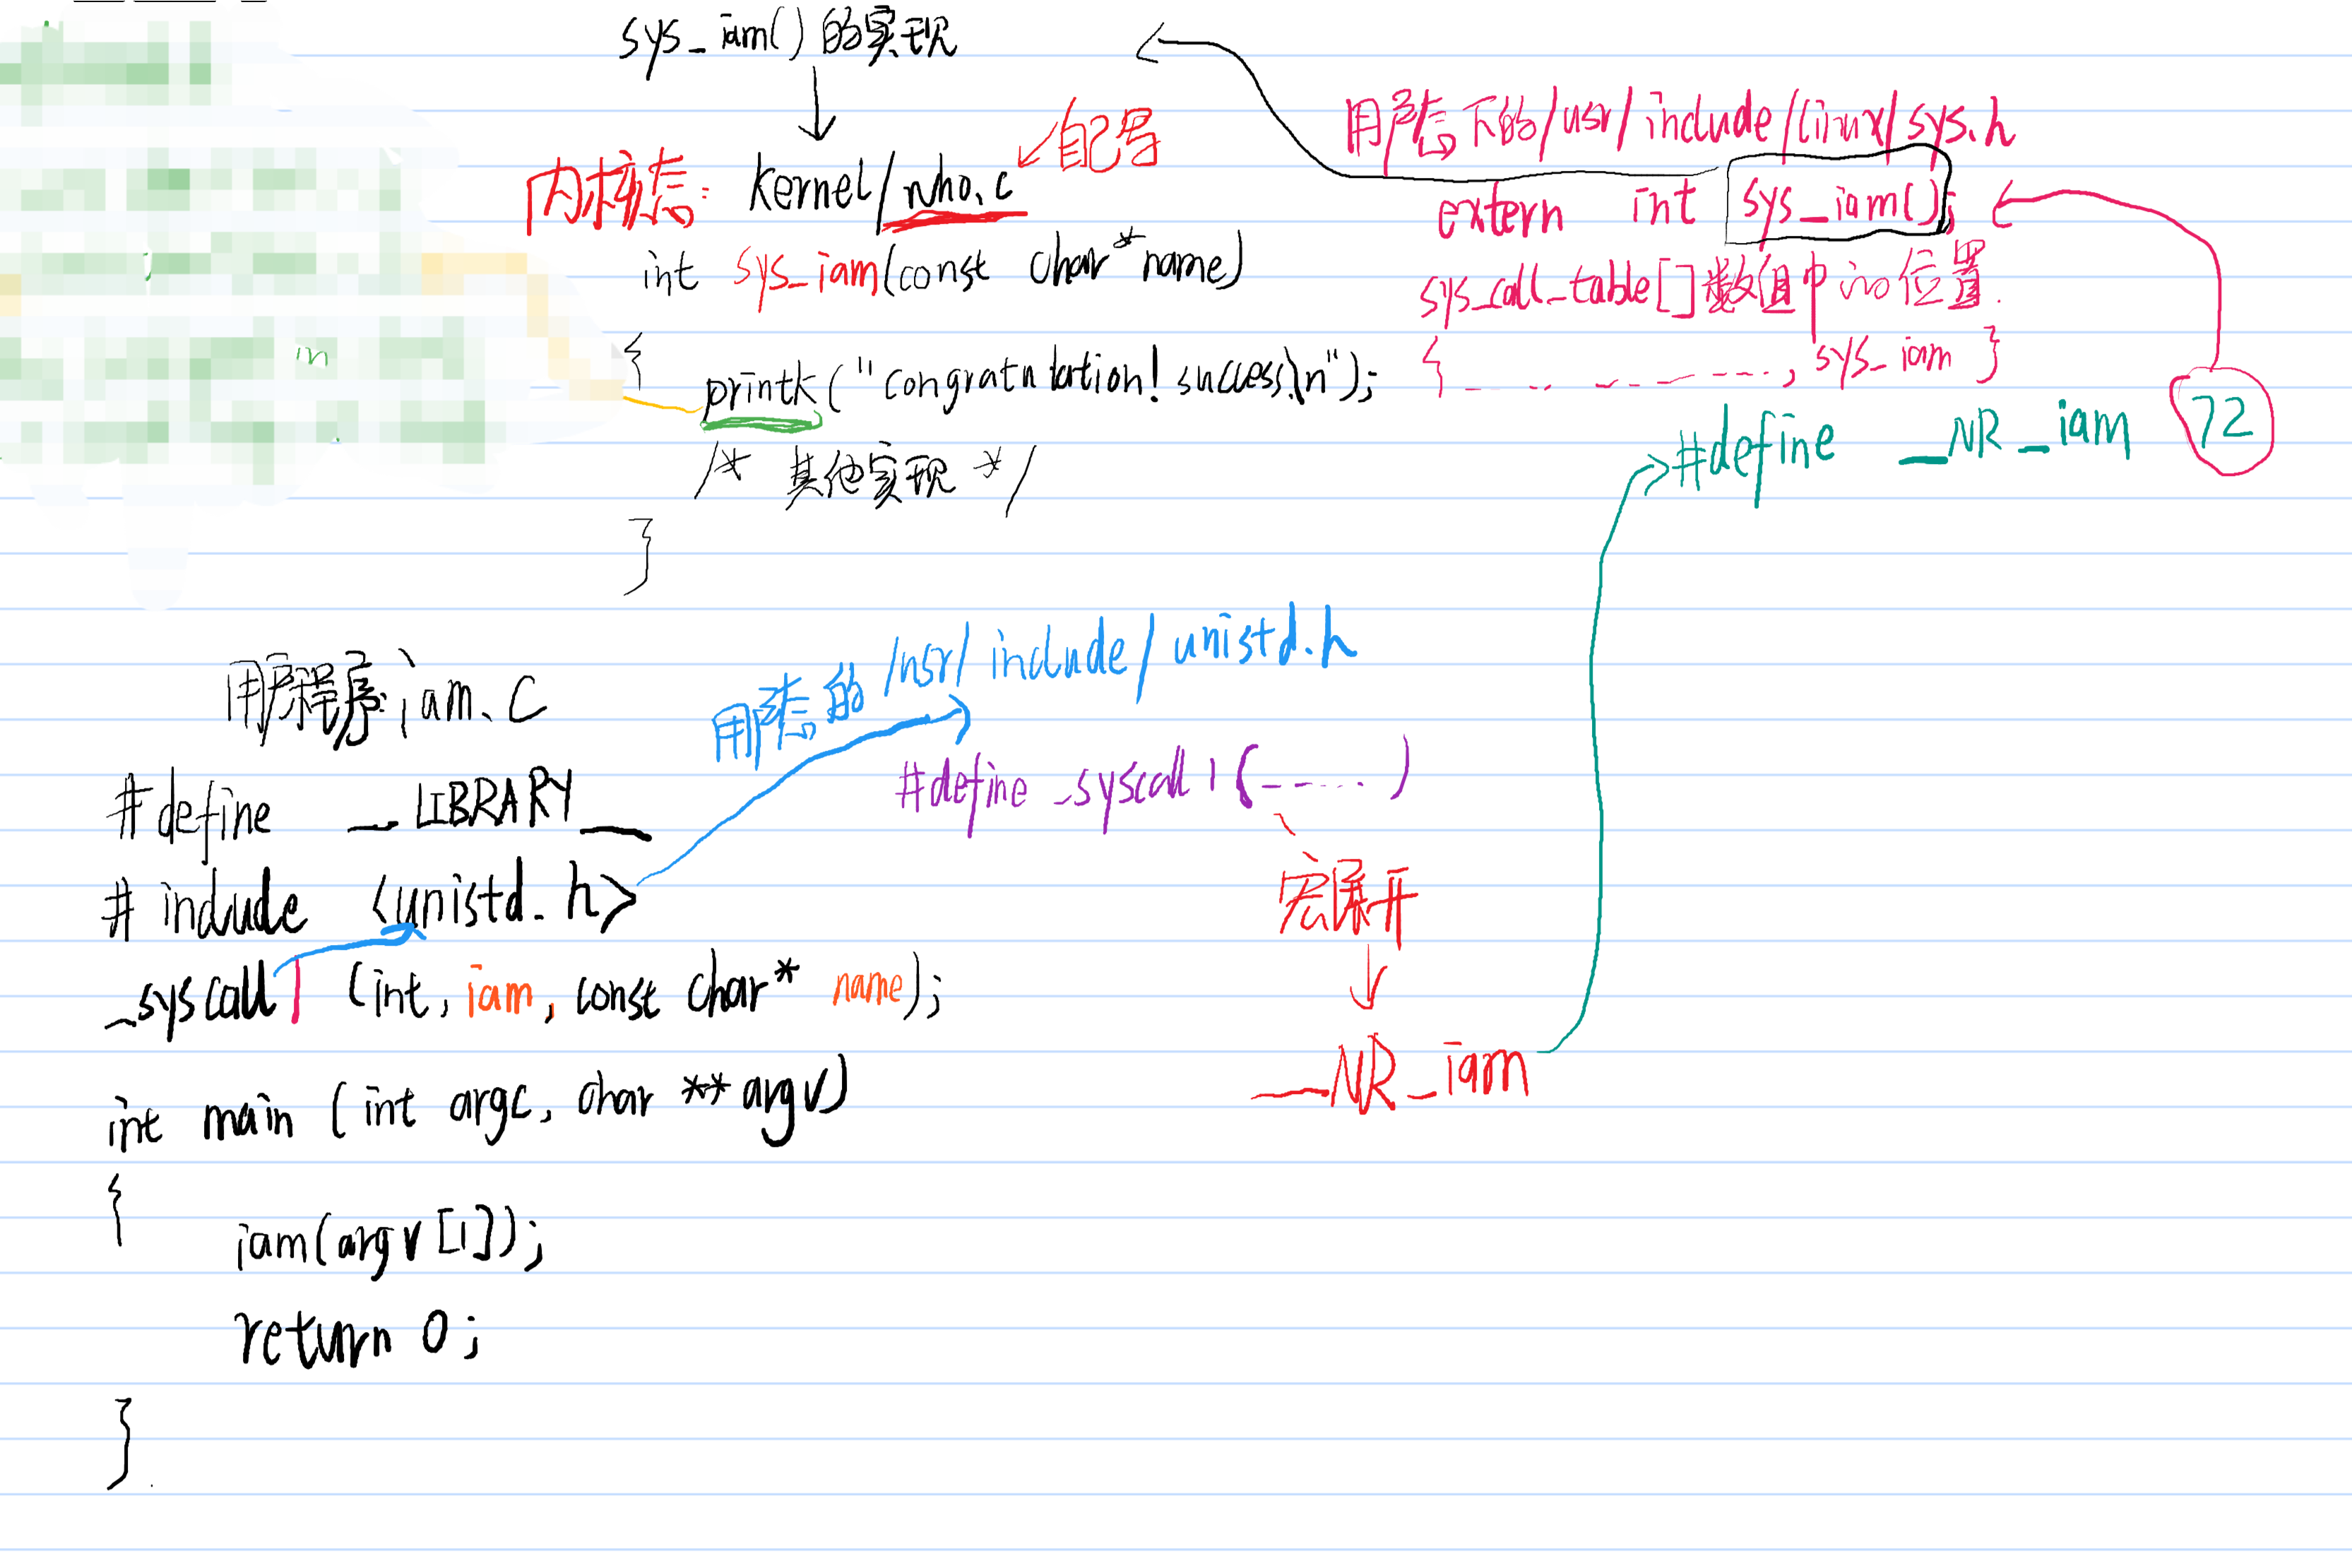 sys_iam()的实现
内核态: kernel/who.c
自己写
int sys_iam(const char*name)
{
printk("congratulation! success!\n");
/* 其他实现 */
}
用户态下的/usr/include/linux/sys.h
extern int sys_iam();
sys_call_table[]数组中的位置.
{ ............, sys_iam }
#define __NR_iam 72
用户程序:iam.c
#define __LIBRARY__
#include <unistd.h>
_syscall1(int, iam, const char* name);
int main (int argc, char **argv)
{
iam(argv[1]);
return 0;
}
用户态的/usr/include/unistd.h
#define _syscall1(......)
宏展开
__NR_iam